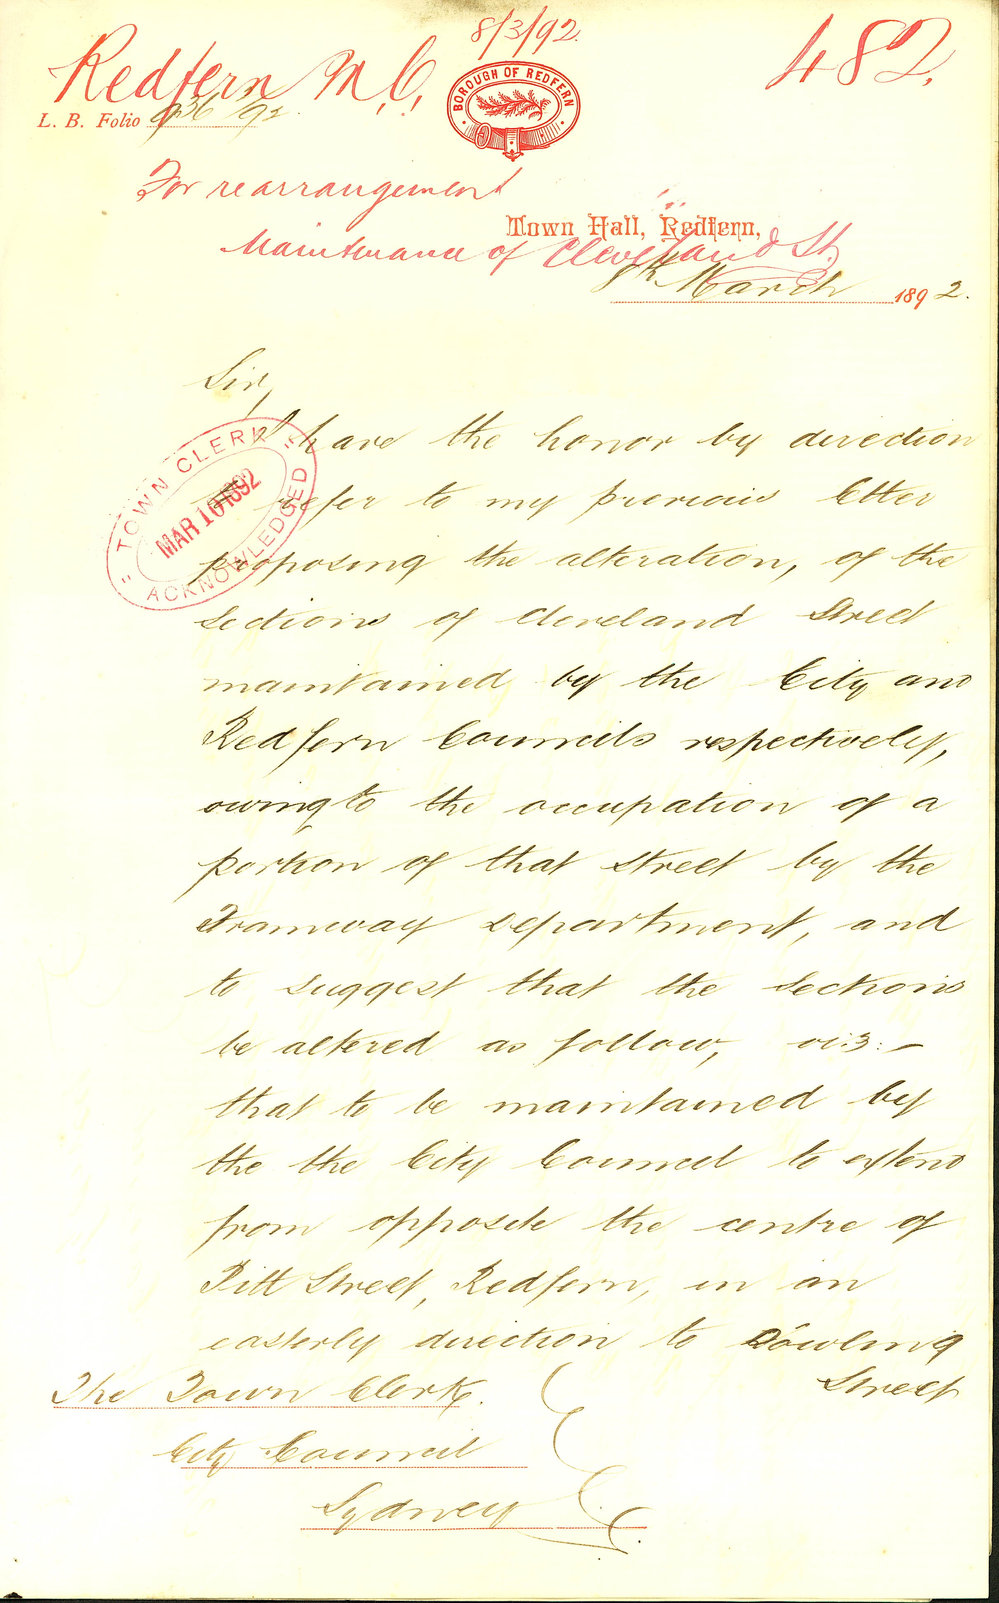 8/3/92.
Redfern M.C. 482.
BOROUGH OF REDFERN
L. B. Folio 936/92.
For rearrangement
Town Hall, Redfern,
Maintenance of Cleveland St.
8th March 1892.
Sir,
I have the honor by direction
to refer to my previous letter
proposing the alteration, of the
Sections of Cleveland Street
maintained by the City and
Redfern Councils respectively,
owing to the occupation of a
portion of that Street by the
Tramway Department, and
to suggest that the Sections
be altered as follow, viz:-
that to be maintained by
the the City Council to extend
from opposite the centre of
Pitt Street, Redfern, in an
easterly direction to Dowling
Street
The Town Clerk.
City Council
Sydney
"TOWN CLERK"
MAR 10 1892
ACKNOWLEDGED